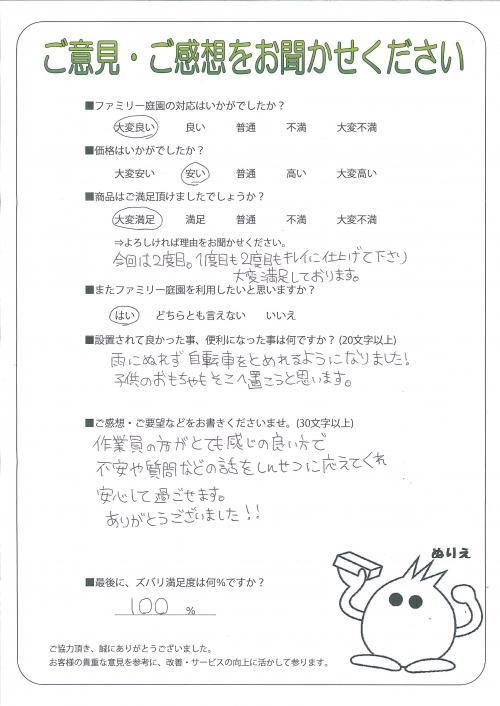 ご意見・ご感想をお聞かせください
■ファミリー庭園の対応はいかがでしたか？
大変良い 良い 普通 不満 大変不満
■価格はいかがでしたか？
大変安い 安い 普通 高い 大変高い
■商品はご満足頂けましたでしょうか？
大変満足 満足 普通 不満 大変不満
⇒よろしければ理由をお聞かせください。
今回は2度目。1度目も2度目もキレイに仕上げて下さり
大変満足しております。
■またファミリー庭園を利用したいと思いますか？
はい どちらとも言えない いいえ
■設置されて良かった事、便利になった事は何ですか？(20文字以上)
雨にぬれず自転車をとめれるようになりました！
子供のおもちゃもそこへ置こうと思います。
■ご感想・ご要望などをお書きくださいませ。(30文字以上)
作業員の方がとても感じの良い方で
不安や質問などの話をしんせつに応えてくれ
安心して過ごせます。
ありがとうございました！！
ぬりえ
■最後に、ズバリ満足度は何％ですか？
100 %
ご協力頂き、誠にありがとうございました。
お客様の貴重な意見を参考に、改善・サービスの向上に活かして参ります。